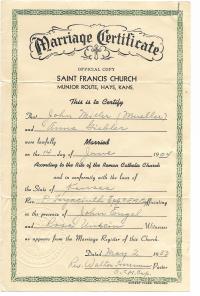 Marriage Certificate
OFFICIAL COPY
SAINT FRANCIS CHURCH
MUNJOR ROUTE, HAYS, KANS.
This is to Certify
That John Miller (Mueller)
and Anna
were lawfully Married
on the 14 day of June 1904
According to the Rite of the Roman Catholic Church
and in conformity with the laws of
the State of Kansas
Rev. P. Hyacinth officiating
in the presence of John Engel
and Rosa Urbin Witnesses
as appears from the Marriage Register of this Church.
Dated May 2
Rev. Walter Pastor
O.F.M. Cap.